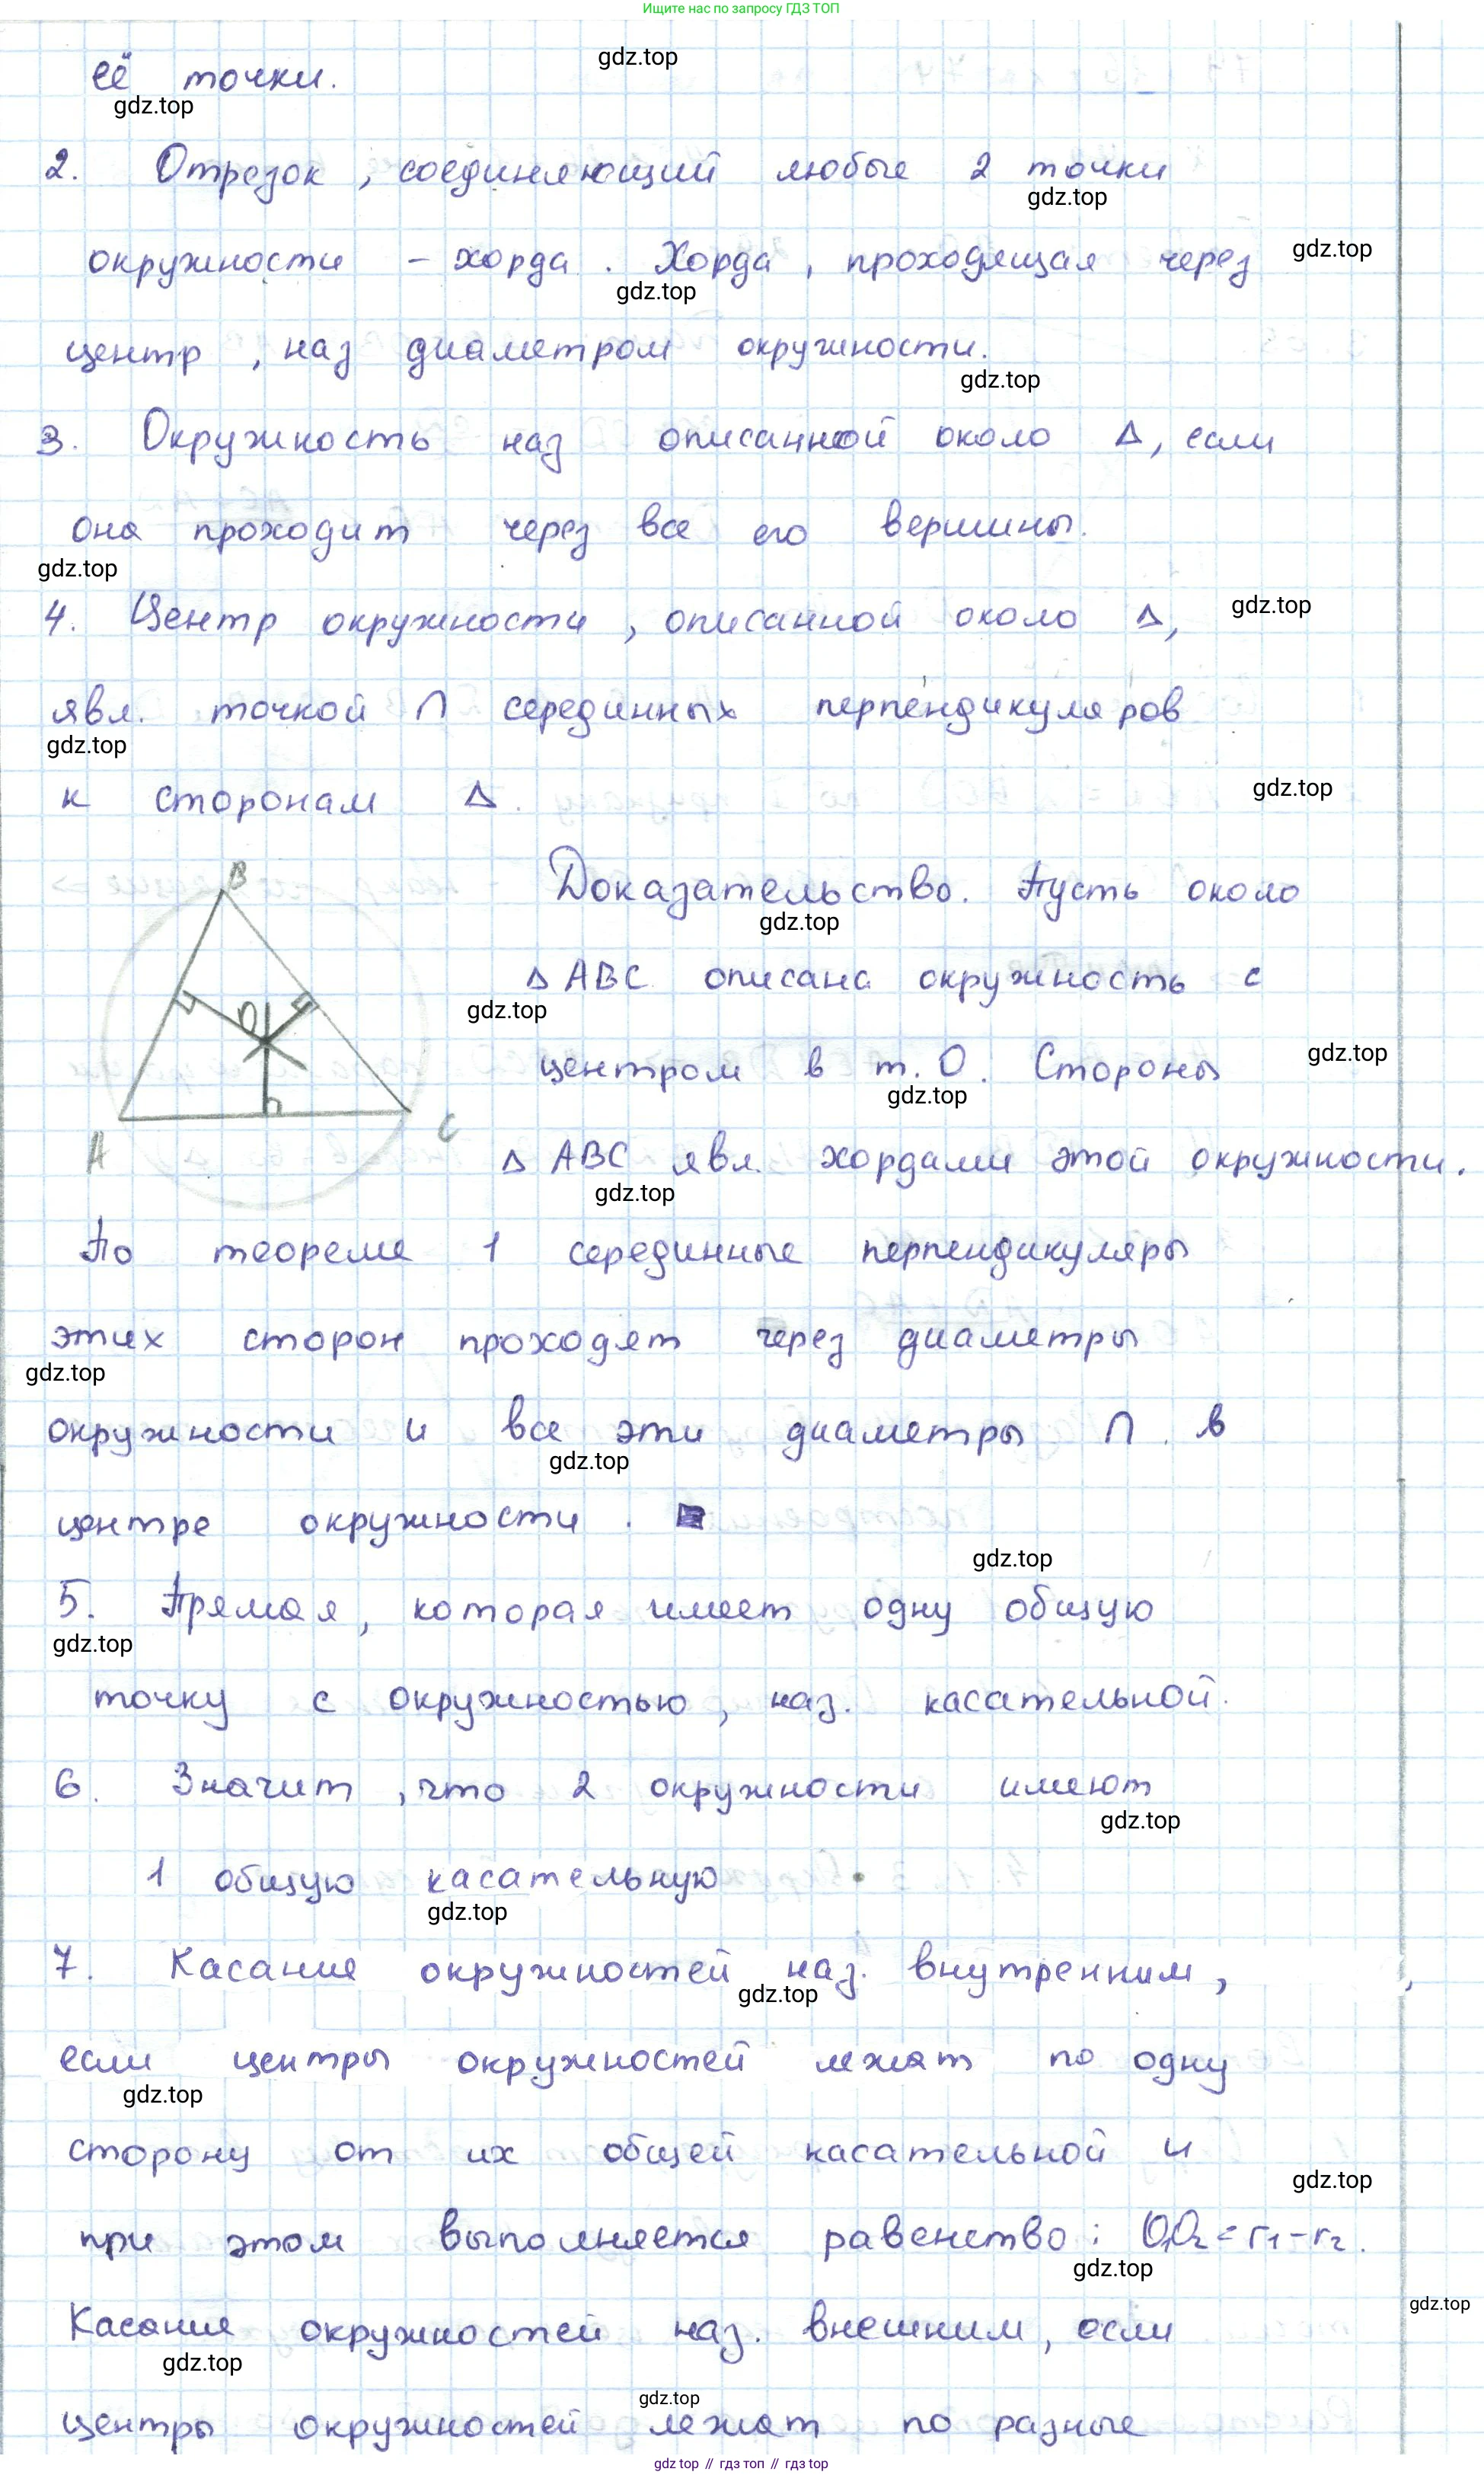 Ищите нас по запросу ГДЗ ТОП
её точки.
gdz.top
gdz.top
2. Отрезок, соединяющий любые 2 точки
gdz.top
окружности - хорда. Хорда, проходящая через
gdz.top
gdz.top
центр, наз диаметром окружности.
gdz.top
3. Окружность наз описанной около Δ, если
она проходит через все его вершины.
gdz.top
4. Центр окружности, описанной около Δ,
gdz.top
явл. точкой ∩ серединных перпендикуляров
gdz.top
к сторонам Δ.
gdz.top
B
O
A
C
Доказательство. Пусть около
gdz.top
Δ ABC описана окружность с
gdz.top
центром в т. O. Стороны
gdz.top
gdz.top
Δ ABC явл. хордами этой окружности.
gdz.top
По теореме 1 серединные перпендикуляры
этих сторон проходят через диаметры
gdz.top
окружности и все эти диаметры ∩ в
gdz.top
центре окружности.
gdz.top
5. Прямая, которая имеет одну общую
gdz.top
точку с окружностью, наз. касательной.
6. Значит, что 2 окружности имеют
gdz.top
1 общую касательную
gdz.top
7. Касание окружностей наз. внутренним,
gdz.top
если центры окружностей лежат по одну
gdz.top
сторону от их общей касательной и
gdz.top
при этом выполняется равенство: O₁O₂ = r₁ - r₂.
gdz.top
gdz.top
Касание окружностей наз. внешним, если
gdz.top
gdz.top
центры окружностей лежат по разные
gdz.top // гдз топ // гдз top